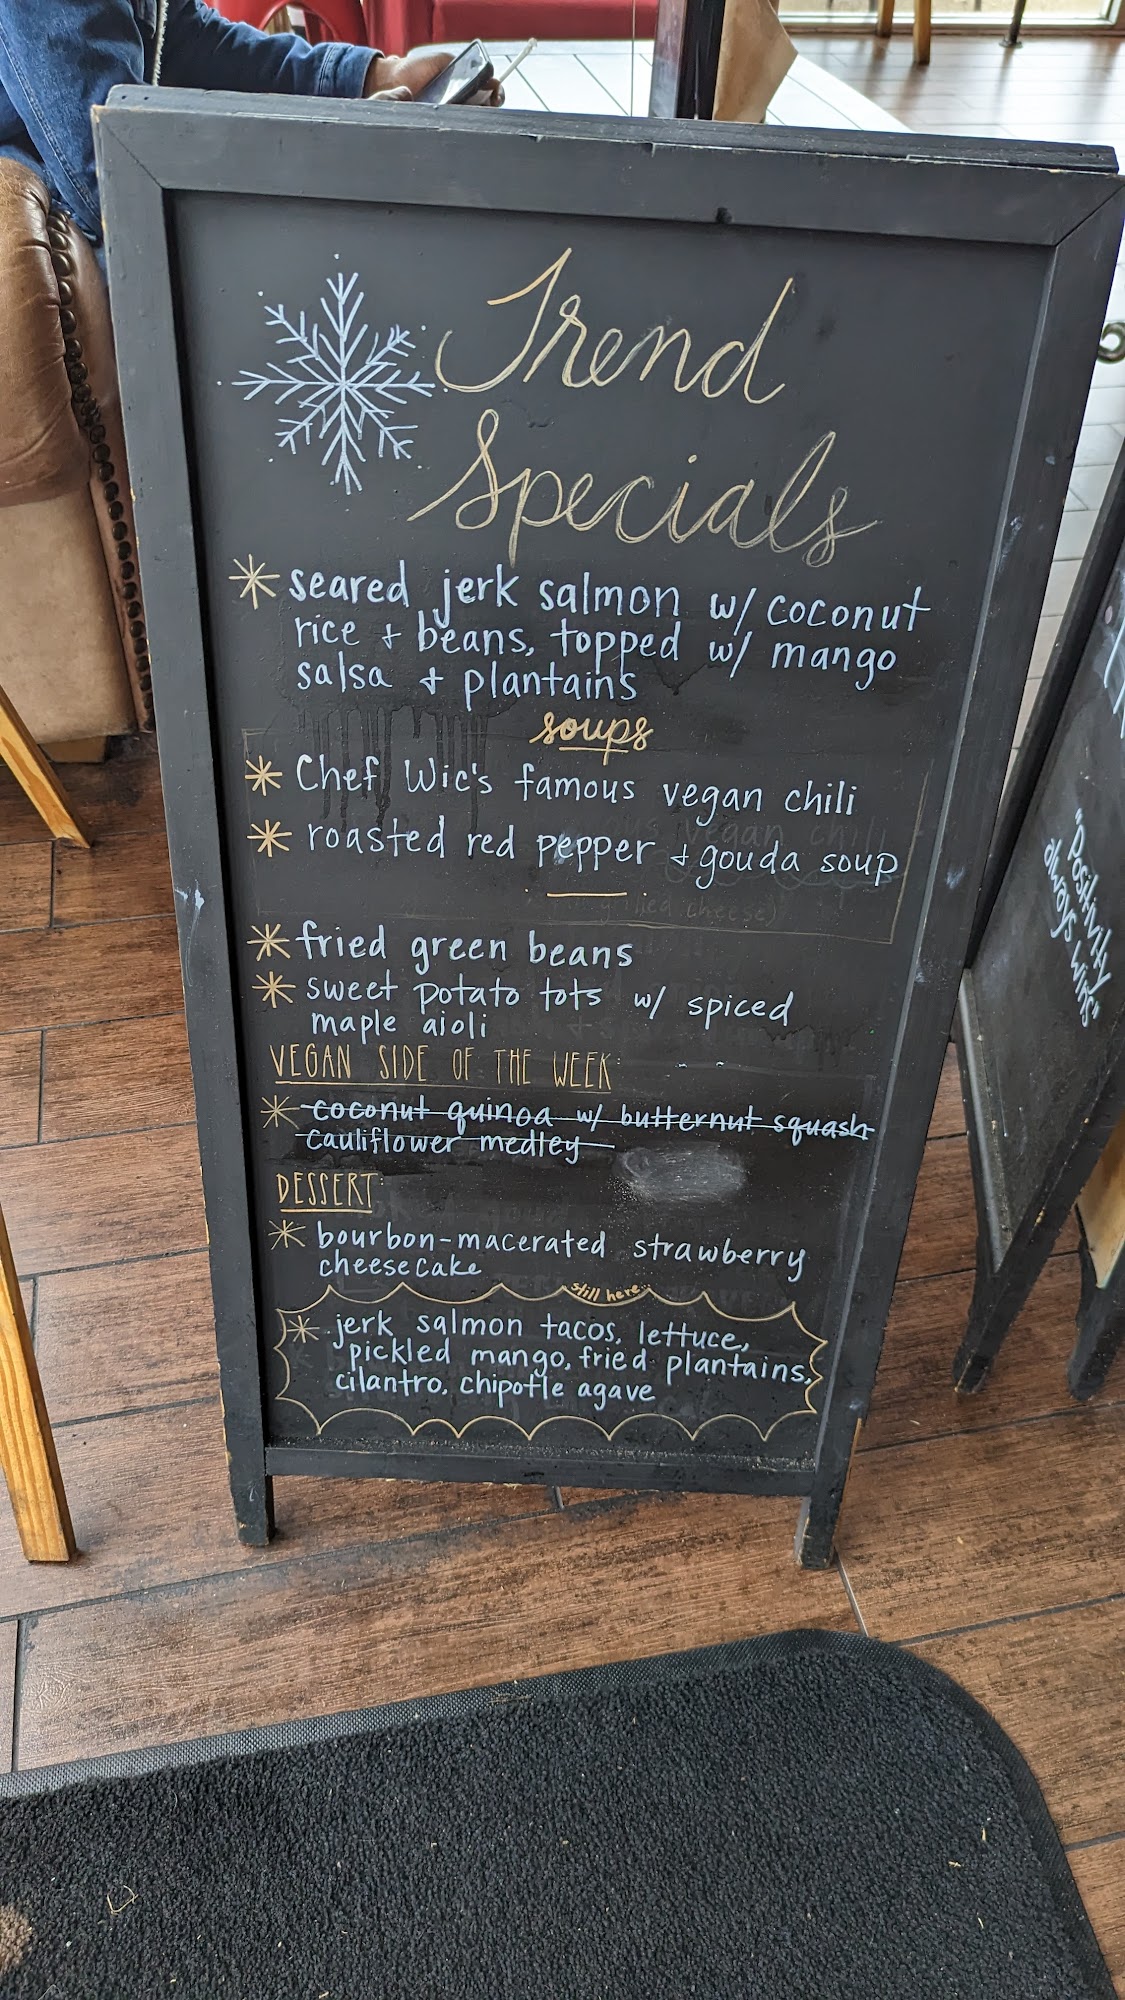 Trend
Specials
seared jerk salmon w/ coconut
rice + beans, topped w/ mango
salsa + plantains
soups
Chef Wic's famous vegan chili
roasted red pepper + gouda soup
fried green beans
sweet potato tots w/ spiced
maple aioli
VEGAN SIDE OF THE WEEK:
coconut quinoa w/ butternut squash
cauliflower medley
DESSERT:
bourbon-macerated strawberry
cheesecake
still here
jerk salmon tacos, lettuce,
pickled mango, fried plantains,
cilantro, chipotle agave
"Positivity
always wins"